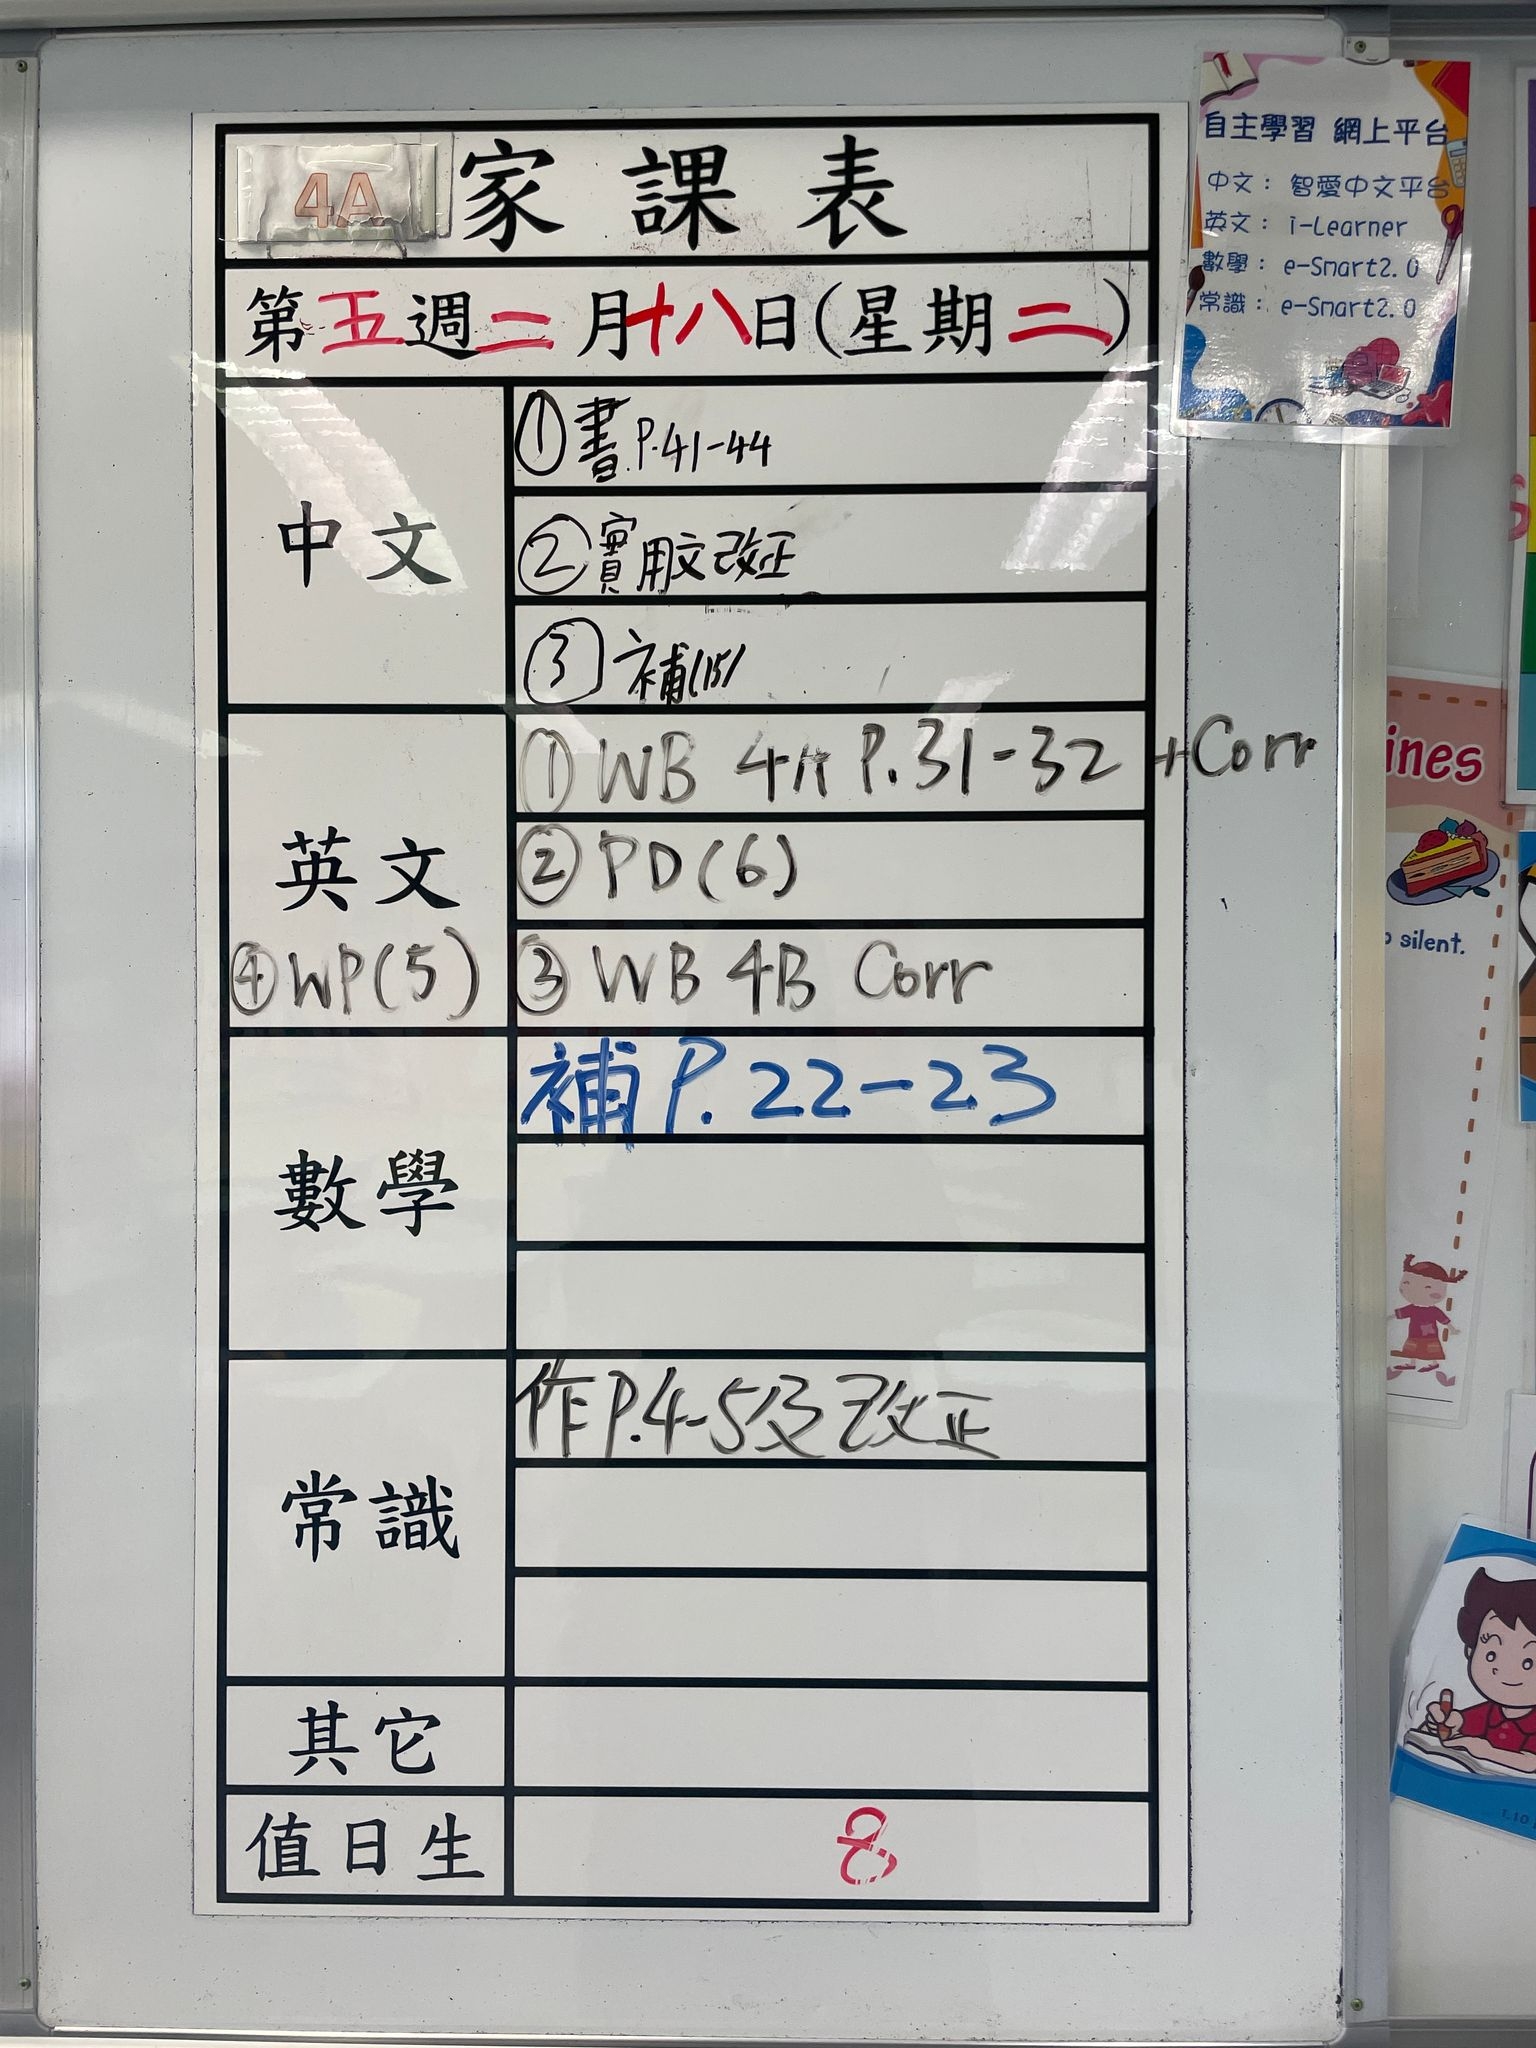 4A 家課表
第五週二月十八日(星期二)
中文
①書P.41-44
②實用文改正
③補(15)
英文
①WB 4A P.31-32 +Corr
②PD(6)
③WB 4B Corr
④WP(5)
數學
補P.22-23
常識
作P.4-5及改正
其它
值日生
8
自主學習 網上平台
中文：智愛中文平台
英文：i-Learner
數學：e-Smart2.0
常識：e-Smart2.0
ines
silent.